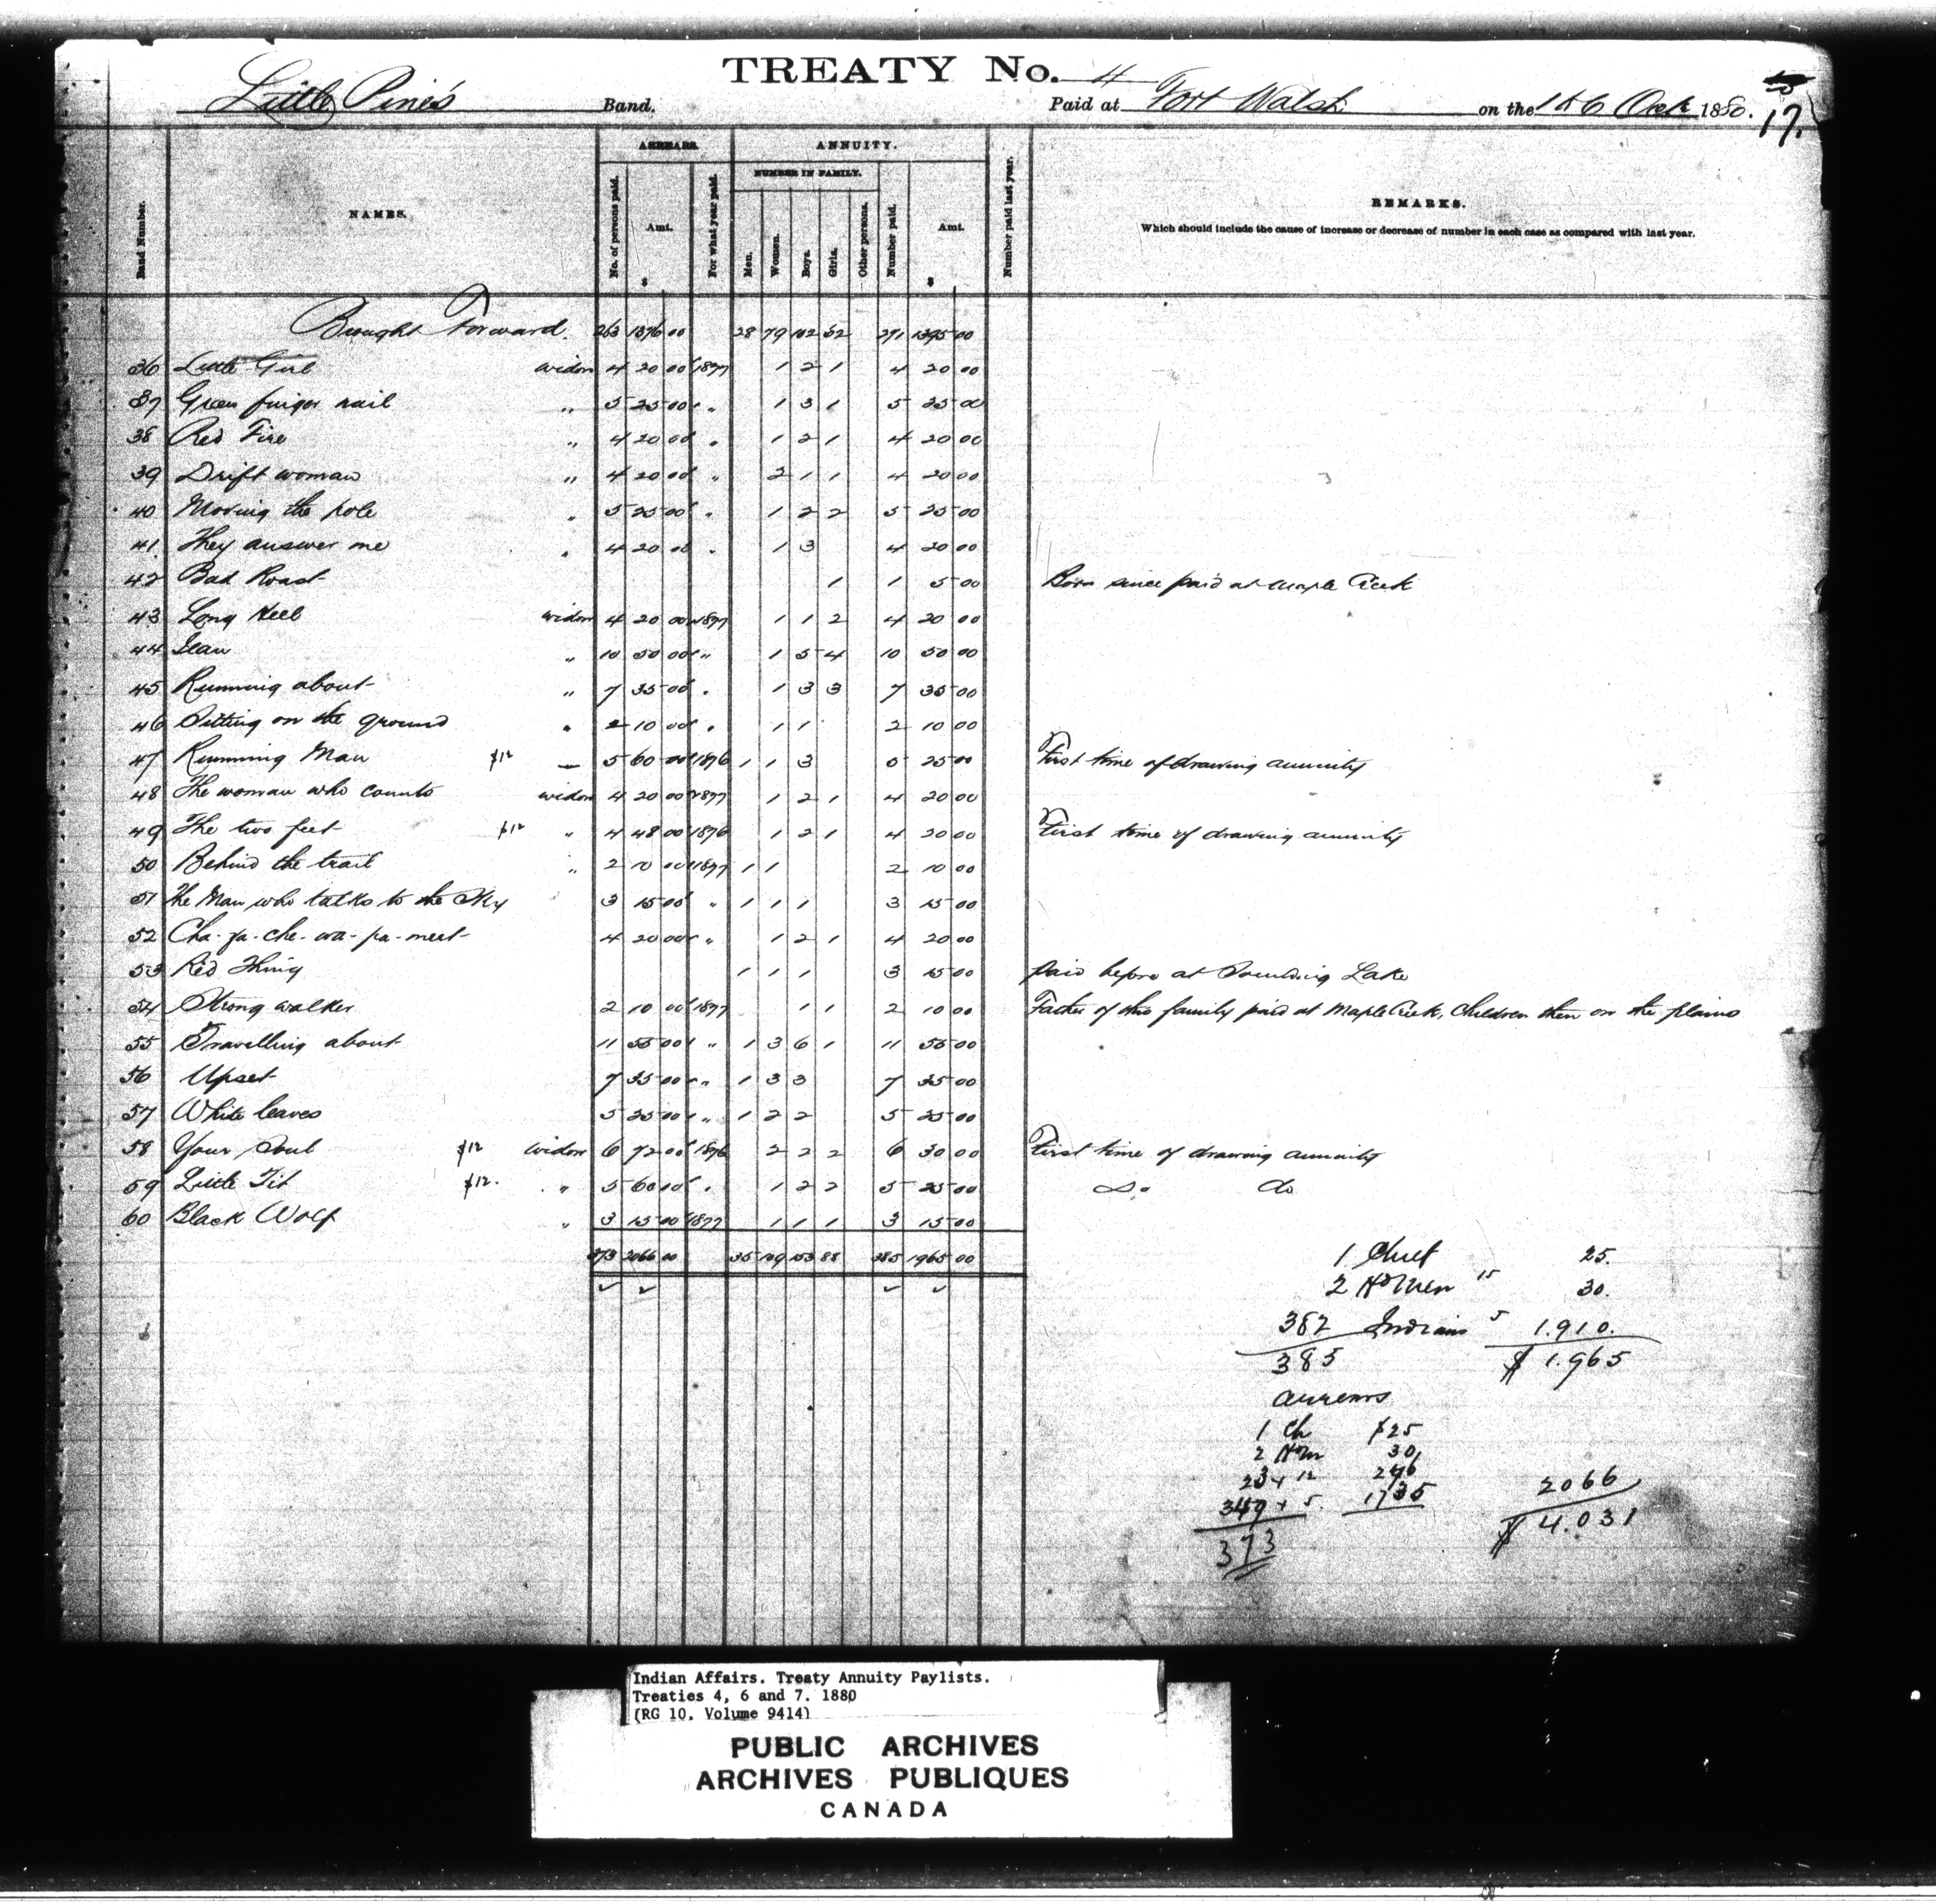 TREATY No. 4
Little Pine's Band. Paid at Fort Walsh on the 1 & 6 Oct 1880.
17.
Band Number. NAMES. ARREARS. No. of persons paid. Amt. $ For what year paid. ANNUITY. NUMBER IN FAMILY. Men. Women. Boys. Girls. Other persons. Number paid. Amt. $ Number paid last year. REMARKS.
Which should include the cause of increase or decrease of number in each case as compared with last year.
Brought Forward. 263 1376 00 28 79 102 62 271 1395 00
36 Little Girl widow 4 20 00 1877 1 2 1 4 20 00
37 Green finger nail " 5 25 00 " 1 3 1 5 25 00
38 Red Fire " 4 20 00 " 1 2 1 4 20 00
39 Drift woman " 4 20 00 " 2 1 1 4 20 00
40 Moving the pole " 5 25 00 " 1 2 2 5 25 00
41 They answer me " 4 20 00 " 1 3 4 20 00
42 Bad Roast 1 1 5 00 Born since paid at Maple Creek
43 Long Heel widow 4 20 00 1877 1 1 2 4 20 00
44 " 10 50 00 " 1 5 4 10 50 00
45 Running about " 7 35 00 " 1 3 3 7 35 00
46 Sitting on the ground " 2 10 00 " 1 1 2 10 00
47 Running Man $12 — 5 60 00 1876 1 1 3 5 25 00 First time of drawing annuity
48 The woman who counts widow 4 20 00 1877 1 2 1 4 20 00
49 The two feet $12 " 4 48 00 1876 1 2 1 4 20 00 First time of drawing annuity
50 Behind the trail " 2 10 00 1877 1 1 2 10 00
51 The Man who talks to the Sky 3 15 00 " 1 1 1 3 15 00
52 Cha-ya-che-wa-pa-meet 4 20 00 " 1 2 1 4 20 00
53 Red Thing 1 1 1 3 15 00 paid before at Sounding Lake
54 Strong walker 2 10 00 1877 1 1 2 10 00 Father of this family paid at Maple Creek, Children then on the plains
55 Travelling about 11 55 00 " 1 3 6 1 11 55 00
56 Upset 7 35 00 " 1 3 3 7 35 00
57 White leaves 5 25 00 " 1 2 2 5 25 00
58 Your Soul $12 widow 6 72 00 1876 2 2 2 6 30 00 First time of drawing annuity
59 Little Tit $12. " 5 60 00 " 1 2 2 5 25 00 Do do
60 Black Wolf " 3 15 00 1877 1 1 1 3 15 00
373 2066 00 35 109 153 88 385 1965 00
1 Chief 25.
2 H'dmen 15 30.
382 Indians 5 1.910.
385 $ 1.965
arrears
1 Ch $25
2 Hm 30
12
349 5 2066
373 $ 4.031
Indian Affairs. Treaty Annuity Paylists.
Treaties 4, 6 and 7. 1880
(RG 10, Volume 9414)
PUBLIC ARCHIVES
ARCHIVES PUBLIQUES
CANADA